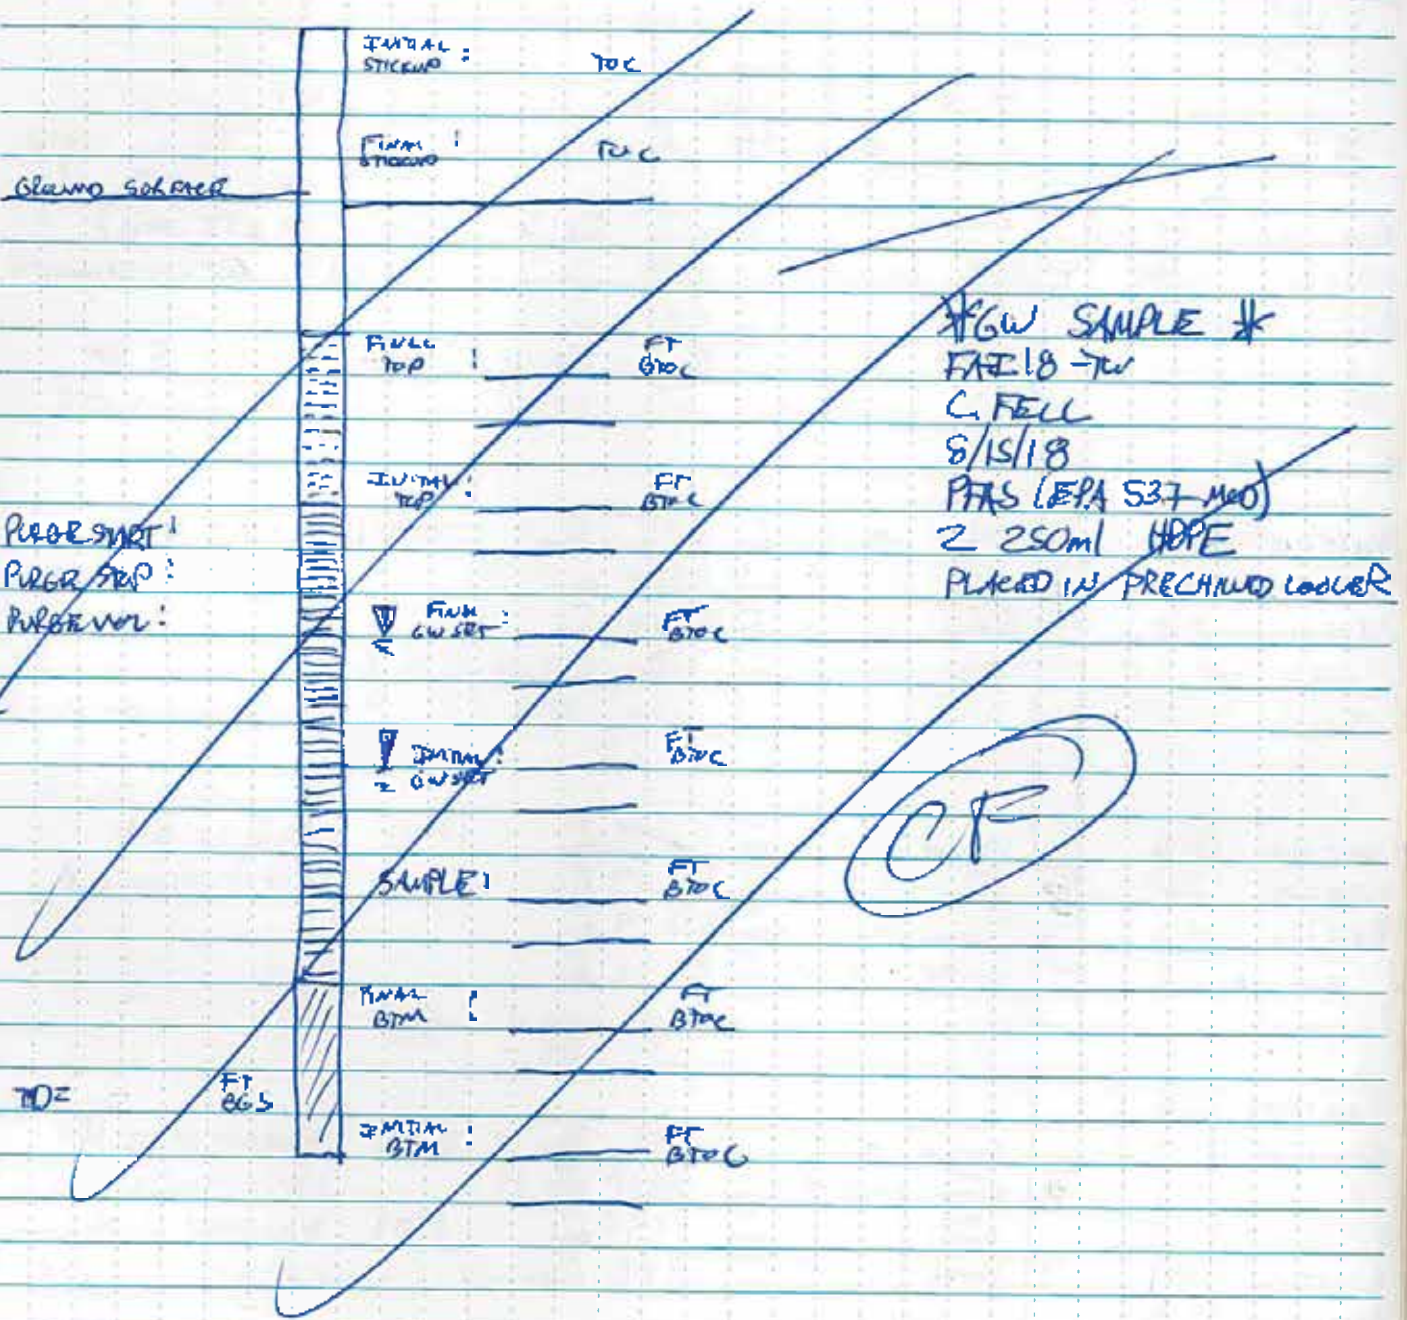 INITIAL STICKUP : TOC
FINAL STICKUP : TOC
GROUND SURFACE
FINAL TOP : FT BTOC
INITIAL TOP : FT BTOC
PURGE START :
PURGE STOP :
PURGE VOL :
FINAL GW SRT : FT BTOC
INITIAL GW SRT : FT BTOC
SAMPLE : FT BTOC
FINAL BTM : FT BTOC
TD= FT BGS
INITIAL BTM : FT BTOC
*GW SAMPLE *
18-TW
C. FELL
8/15/18
PFAS (EPA 537-MOD)
2 250ml HDPE
PLACED IN PRECHILLED COOLER
CF